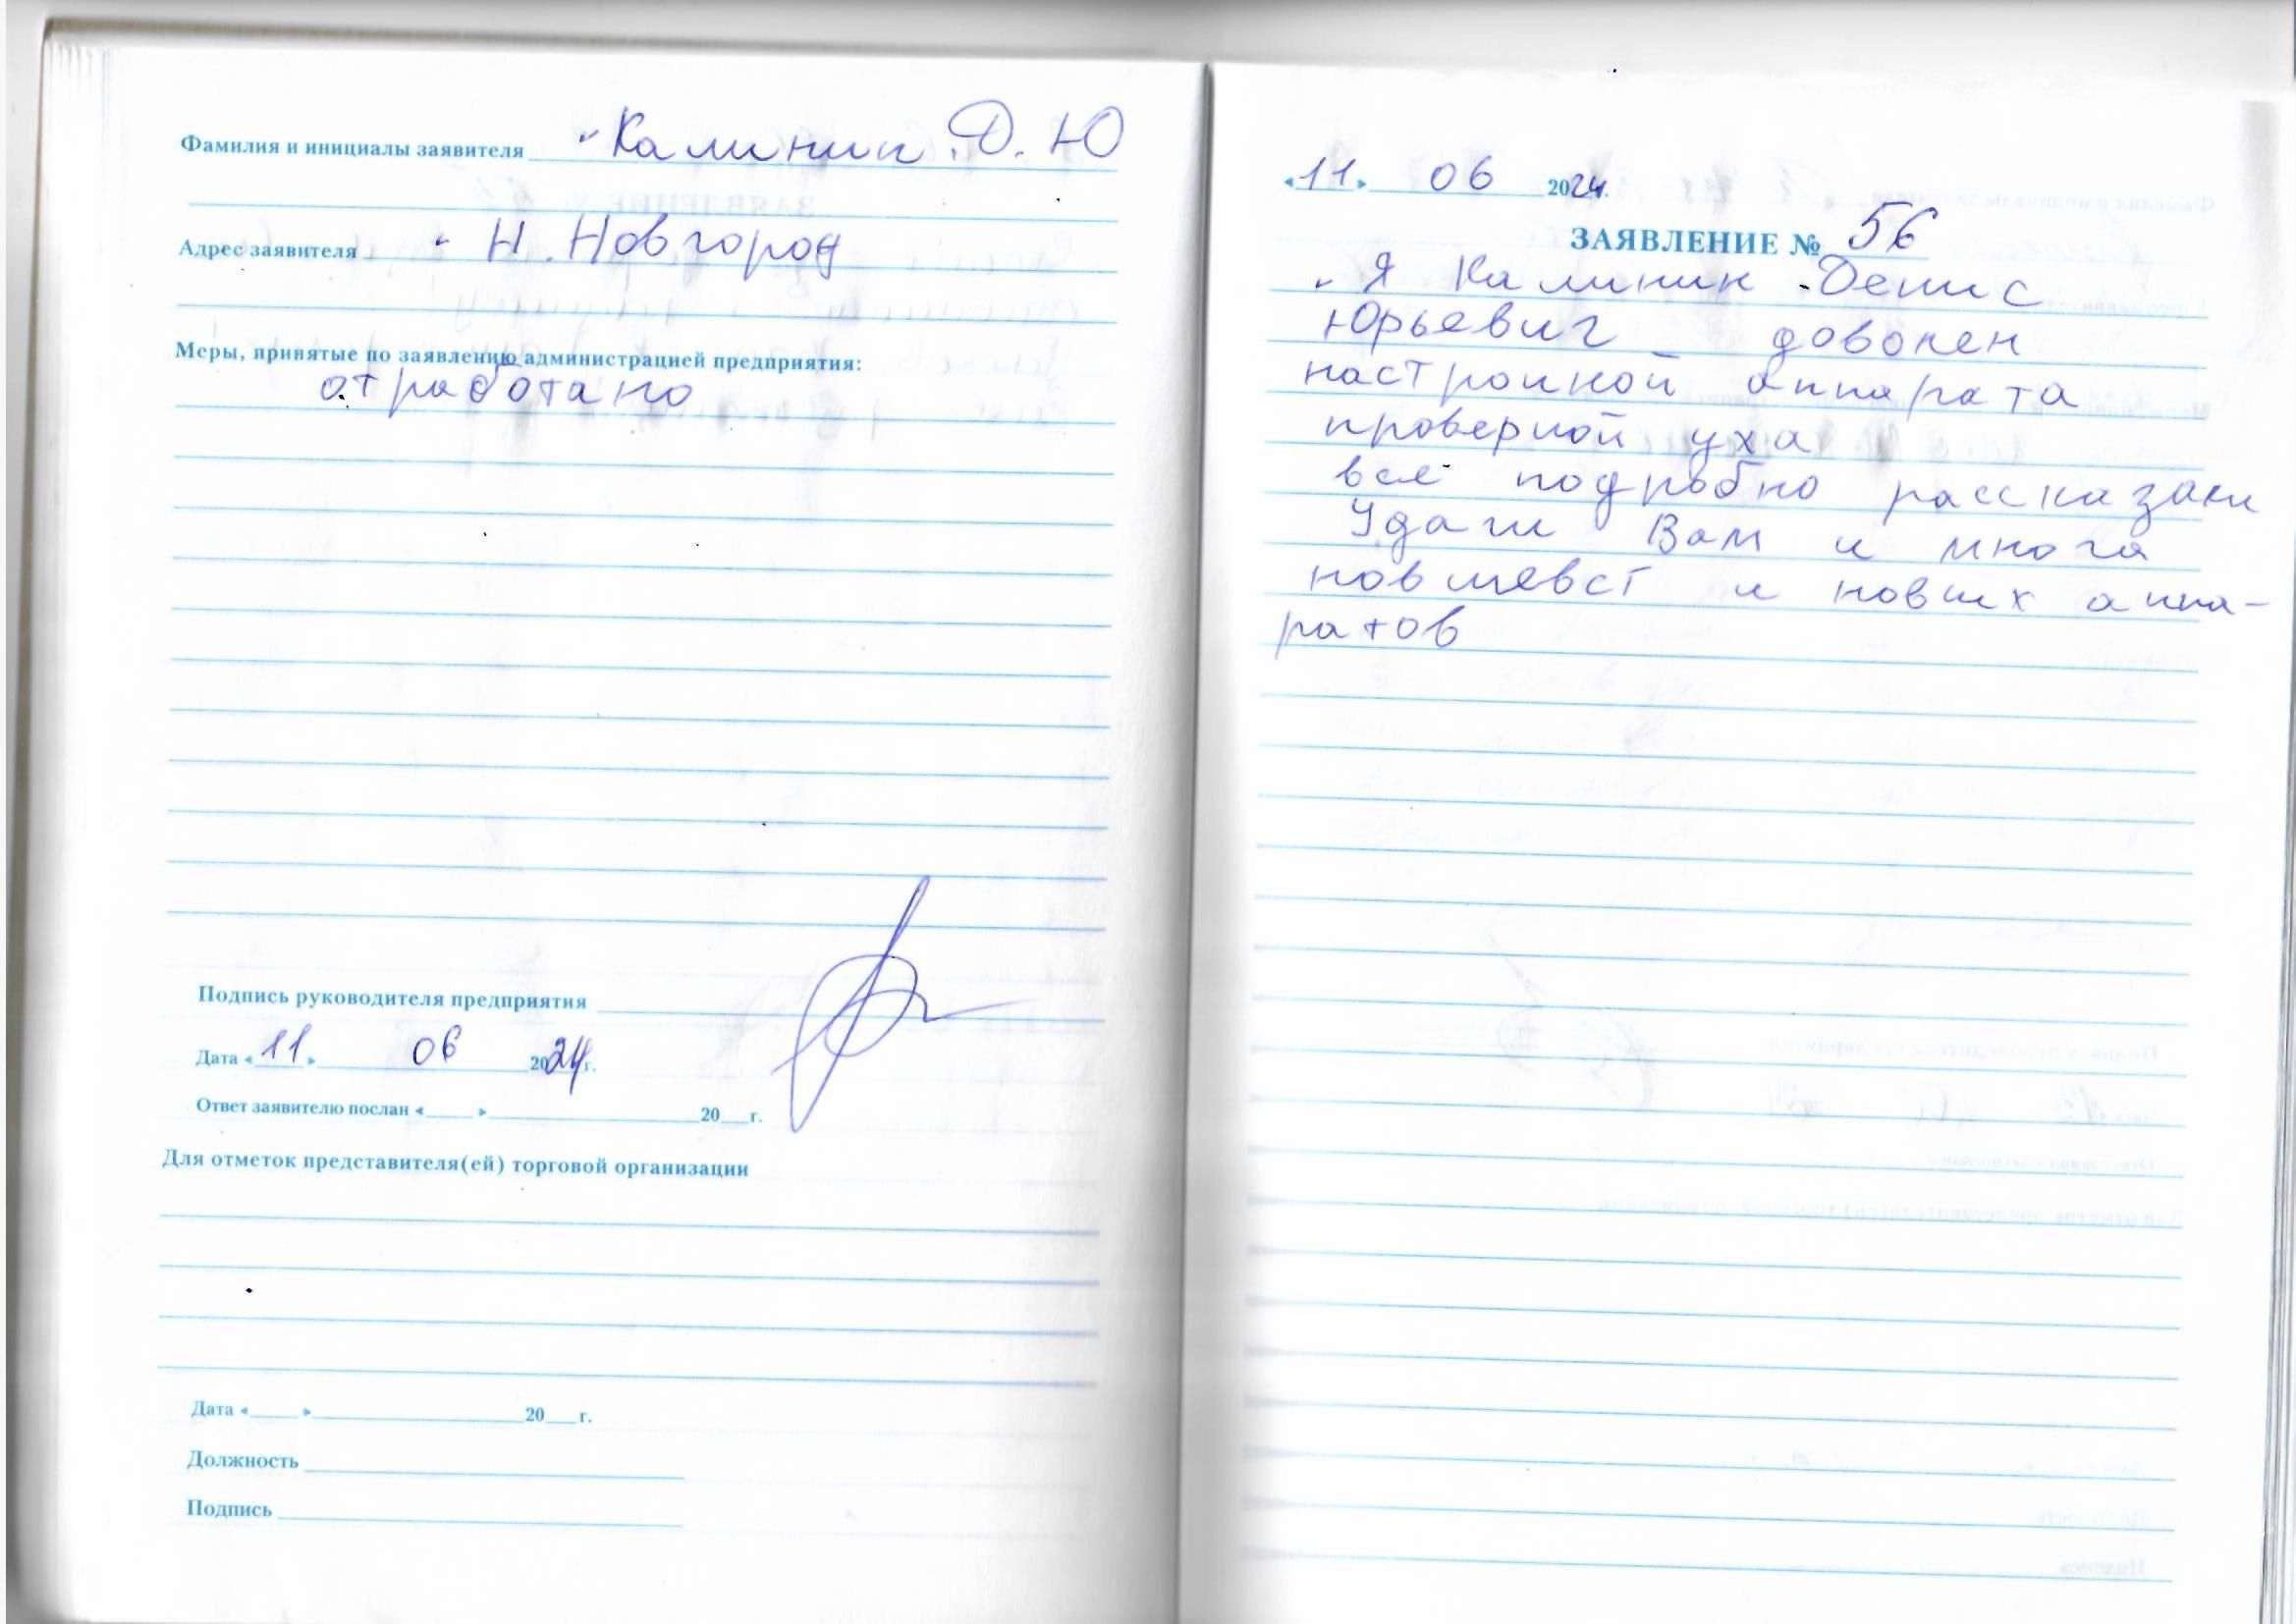 Фамилия и инициалы заявителя Калинин Д. Ю
Адрес заявителя Н. Новгород
Меры, принятые по заявлению администрацией предприятия:
отработано
Подпись руководителя предприятия
Дата «11» 06 2024г.
Ответ заявителю послан «____» ____ 20___г.
Для отметок представителя(ей) торговой организации
Дата «____» ____ 20___г.
Должность
Подпись
«11» 06 2024г.
ЗАЯВЛЕНИЕ № 56
Я Калинин Денис
Юрьевич доволен
настройкой аппарата
проверкой уха
всё подробно рассказали
Удачи Вам и много
новшевст и новых аппа-
ратов